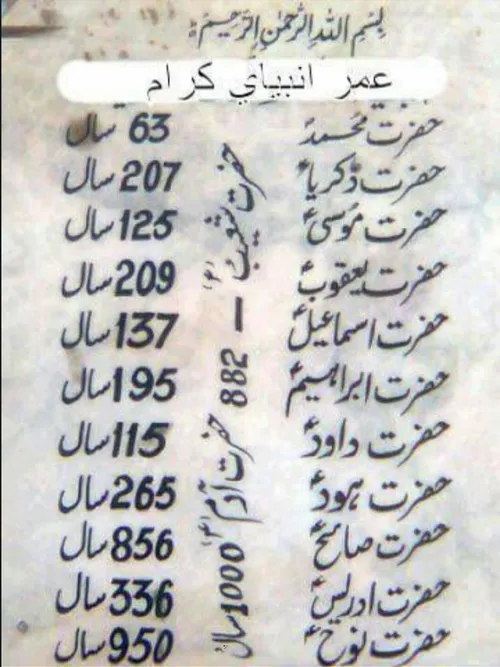 بِسْمِ اللهِ الرَّحْمٰنِ الرَّحِيْمِ
عمر انبياي كرام
حضرت محمدؐ 63 سال
حضرت ذکریاؑ 207 سال
حضرت موسیٰؑ 125 سال
حضرت یعقوبؑ 209 سال
حضرت اسماعیلؑ 137 سال
حضرت ابراہیمؑ 195 سال
حضرت داودؑ 115 سال
حضرت ہودؑ 265 سال
حضرت صالحؑ 856 سال
حضرت ادریسؑ 336 سال
حضرت نوحؑ 950 سال
حضرت شعیبؑ - 882
حضرت آدمؑ 1000 سال